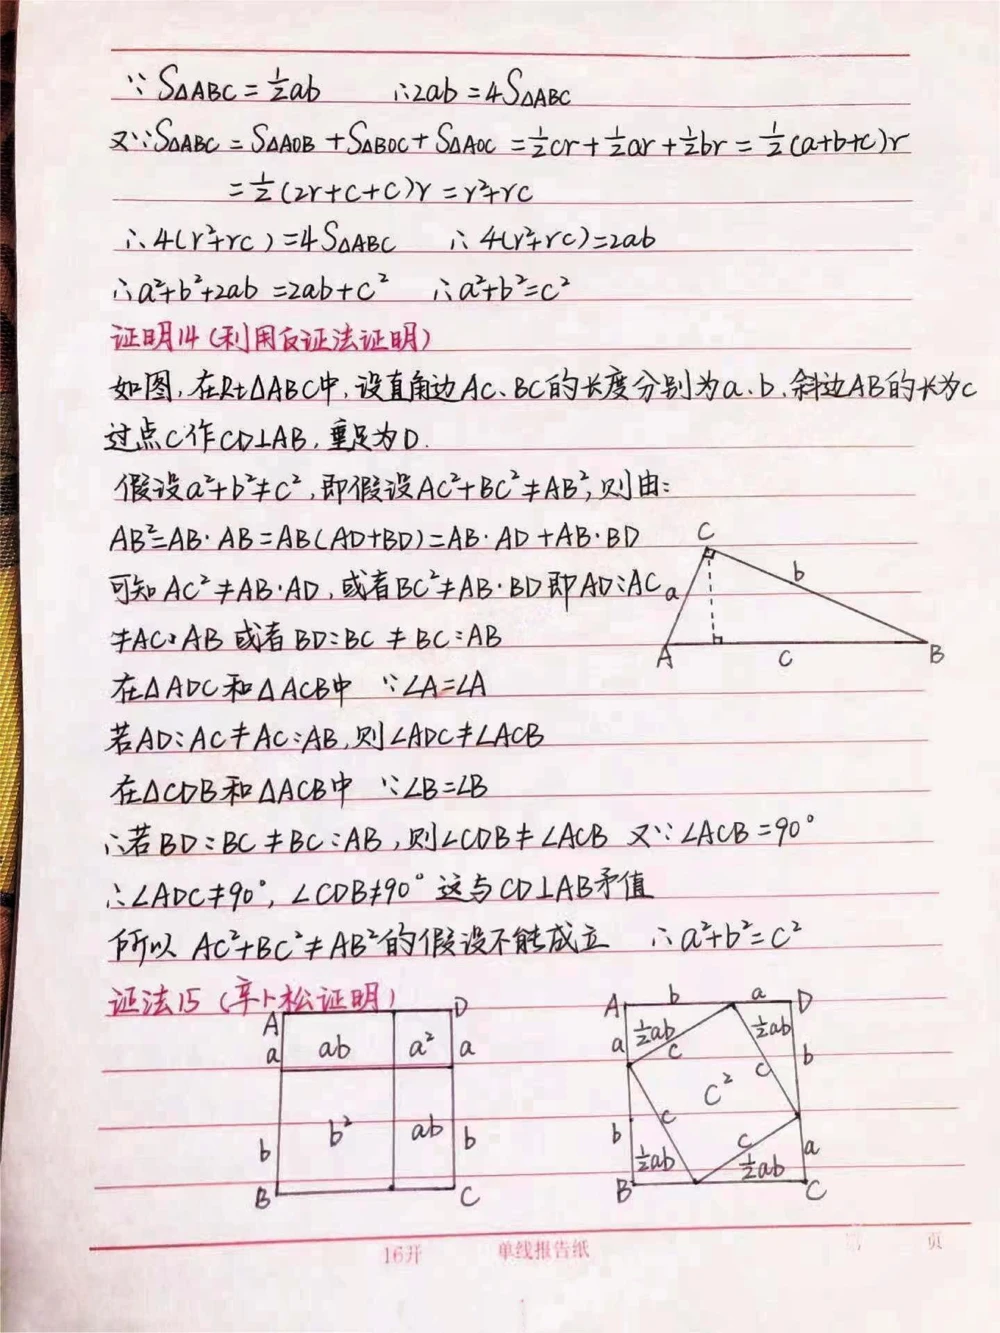 ∵S△ABC=½ab ∴2ab=4S△ABC
又∵S△ABC=S△AOB+S△BOC+S△AOC=½cr+½ar+½br=½(a+b+c)r
=½(2r+c+c)r=r²+rc
∴4(r²+rc)=4S△ABC ∴4(r²+rc)=2ab
∴a²+b²+2ab=2ab+c² ∴a²+b²=c²
证明14(利用反证法证明)
如图,在Rt△ABC中,设直角边AC、BC的长度分别为a、b、斜边AB的长为c
过点C作CD⊥AB,垂足为D.
假设a²+b²≠c²,即假设AC²+BC²≠AB²,则由:
AB²=AB·AB=AB(AD+BD)=AB·AD+AB·BD
可知AC²≠AB·AD,或者BC²≠AB·BD即AD:AC
≠AC:AB或者BD:BC≠BC:AB
C
a
b
A
c
B
在△ADC和△ACB中 ∵∠A=∠A
若AD:AC≠AC:AB,则∠ADC≠∠ACB
在△CDB和△ACB中 ∵∠B=∠B
∴若BD:BC≠BC:AB,则∠CDB≠∠ACB 又∵∠ACB=90°
∴∠ADC≠90°,∠CDB≠90°这与CD⊥AB矛值
所以AC²+BC²≠AB²的假设不能成立 ∴a²+b²=c²
证法15(辛卜松证明)
A D
a ab a² a
b b² ab b
B C
A b a D
a ½ab c ½ab b
c² c
b c c a
½ab ½ab
B C
16开 单线报告纸 页